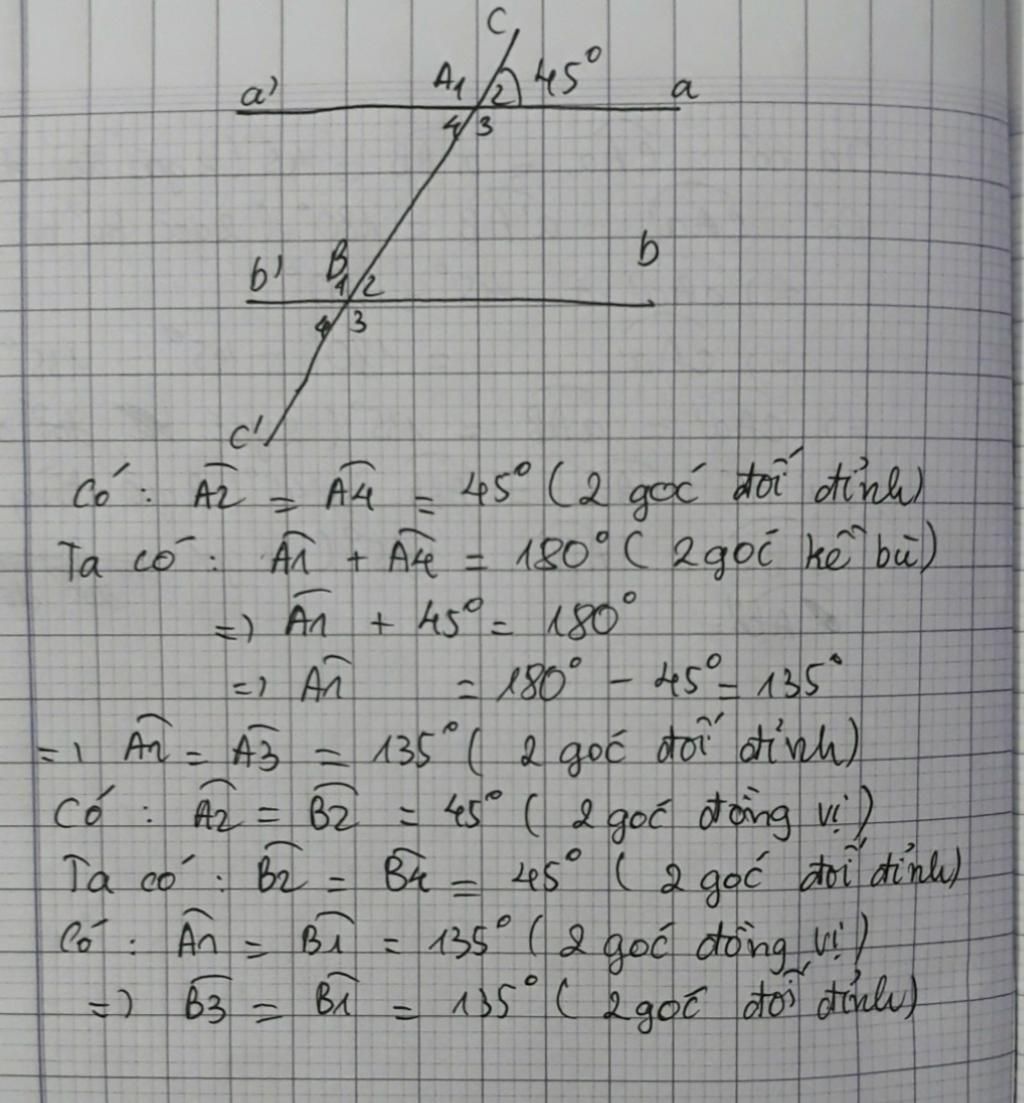 C
A1 2 45°
a' a
4 3
b' B 1 2 b
4 3
C'
Có: A2 = A4 = 45° (2 góc đối đỉnh)
Ta có: A1 + A4 = 180° (2 góc kề bù)
=> A1 + 45° = 180°
=> A1 = 180° - 45° = 135°
=> A1 = A3 = 135° (2 góc đối đỉnh)
Có: A2 = B2 = 45° (2 góc đồng vị)
Ta có: B2 = B4 = 45° (2 góc đối đỉnh)
Có: A1 = B1 = 135° (2 góc đồng vị)
=> B3 = B1 = 135° (2 góc đối đỉnh)